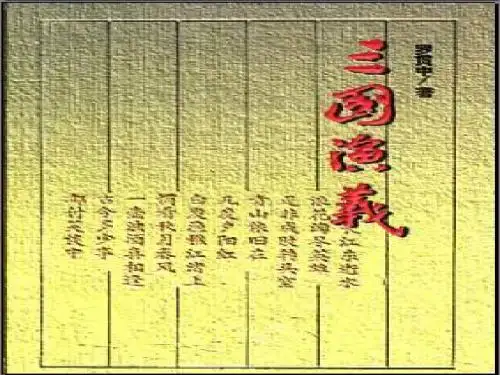 罗贯中/著
三国演義
江东逝水
浪花淘尽英雄
是非成败转头空
青山依旧在
几度夕阳红
白发渔樵江渚上
惯看秋月春风
一壶浊酒喜相逢
古今多少事
都付笑谈中